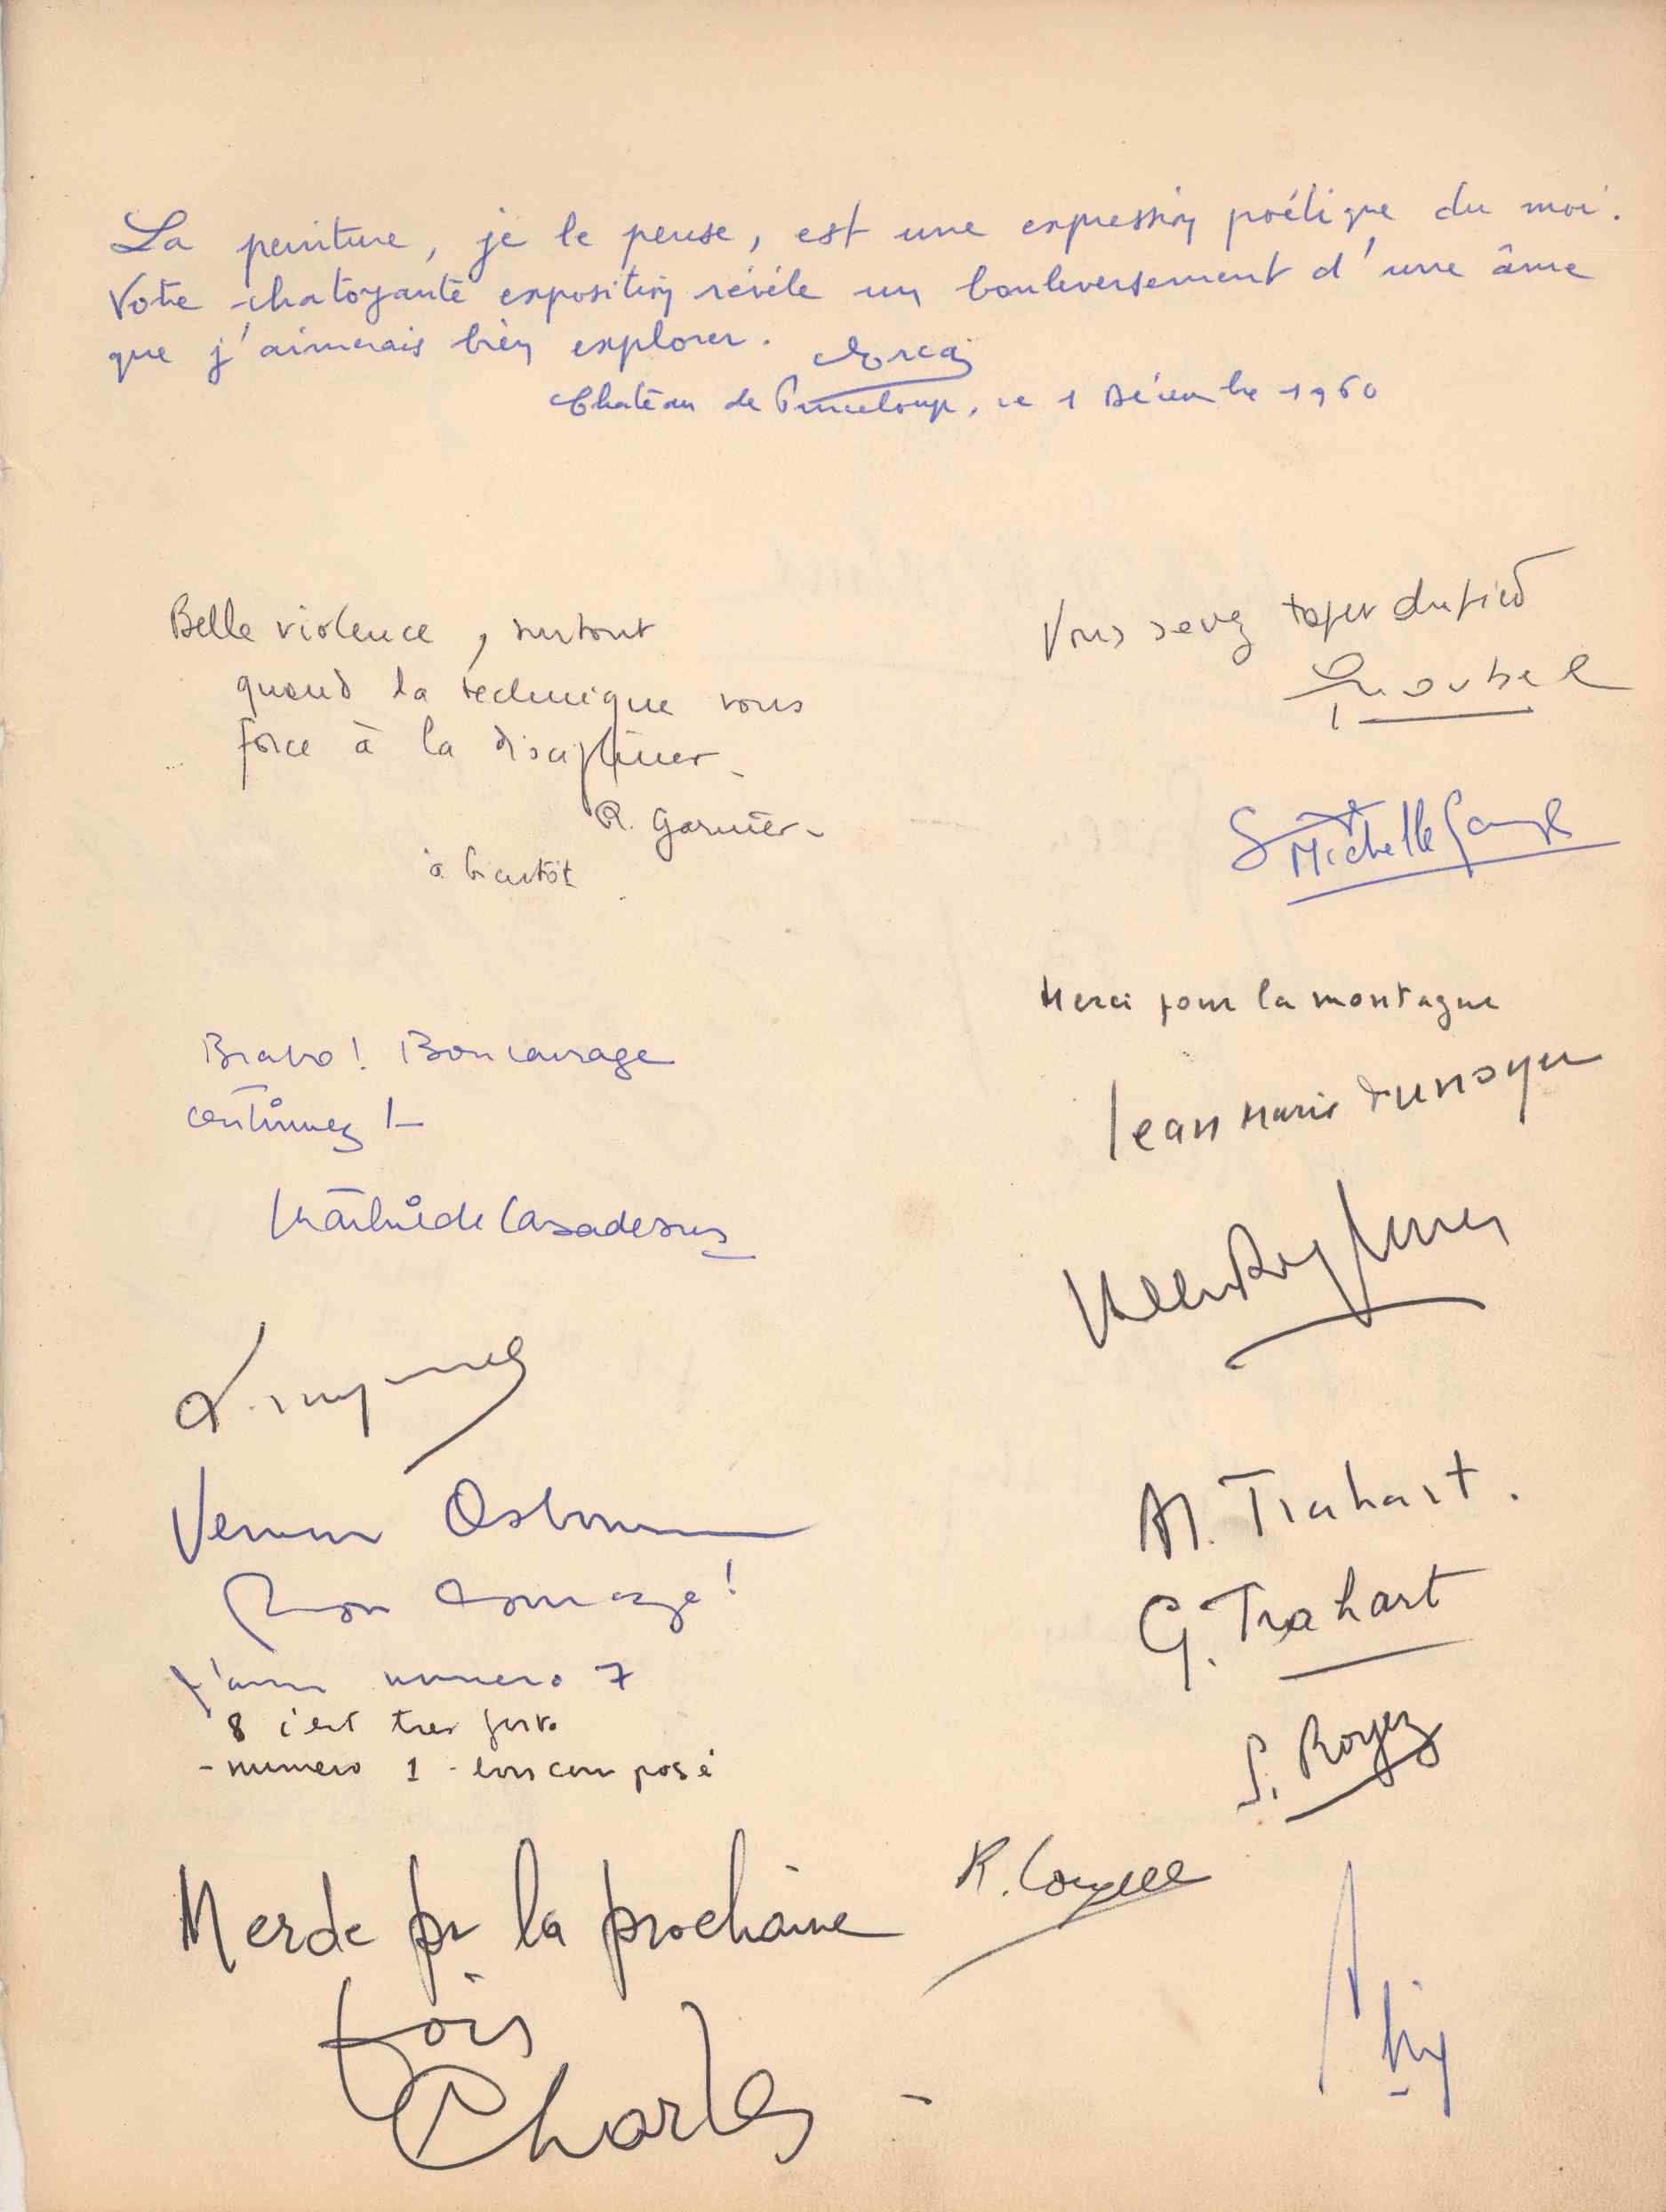 La peinture, je le pense, est une expression poétique du moi.
Votre chatoyante exposition révèle un bouleversement d'une âme
que j'aimerais bien explorer.
Château de Princeloup, ce 1 Décembre 1960
Belle violence, surtout
quand la technique vous
force à la discipliner.
R. Garnier
à bientôt
Vous savez taper du pied
Michelle
Merci pour la montagne
Jean Marie Dunoyer
Bravo ! Bon courage
continuez !
Mathilde Casadesus
Osborne
Bon courage !
J'aime numero 7
8 c'est tres forte
- numero 1 - bien composé
M. Trahart.
G. Trahart
S. Royez
Merde pr la prochaine
fois
Charles
R.